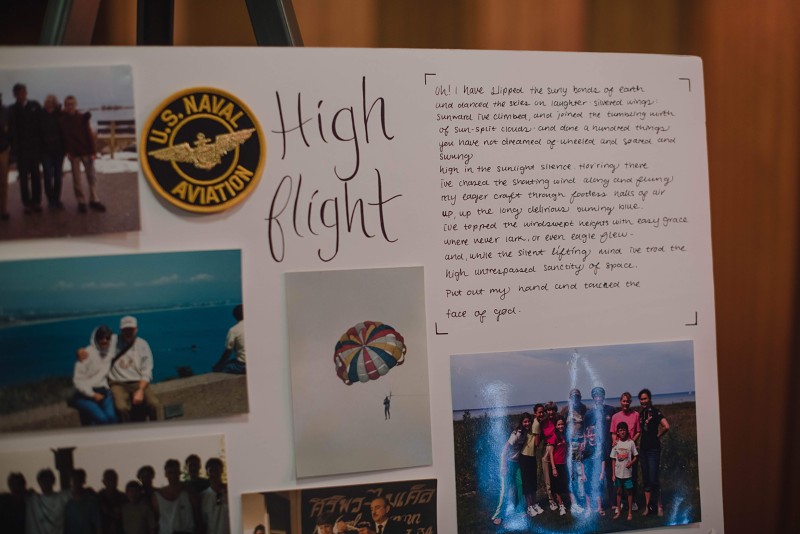 U.S. NAVAL
AVIATION
High
flight
Oh! I have slipped the surly bonds of earth
and danced the skies on laughter-silvered wings
sunward i've climbed, and joined the tumbling mirth
of sun-split clouds and done a hundred things
you have not dreamed of wheeled and soared and
swung
high in the sunlight silence. Hov'ring there
i've chased the shouting wind along and flung
my eager craft through footless halls of air
up, up the long delirious burning blue.
i've topped the windswept heights with easy grace
where never lark, or even eagle flew.
and, while the silent lifting mind i've trod the
high untrespassed sanctity of space.
Put out my hand and touched the
face of god.